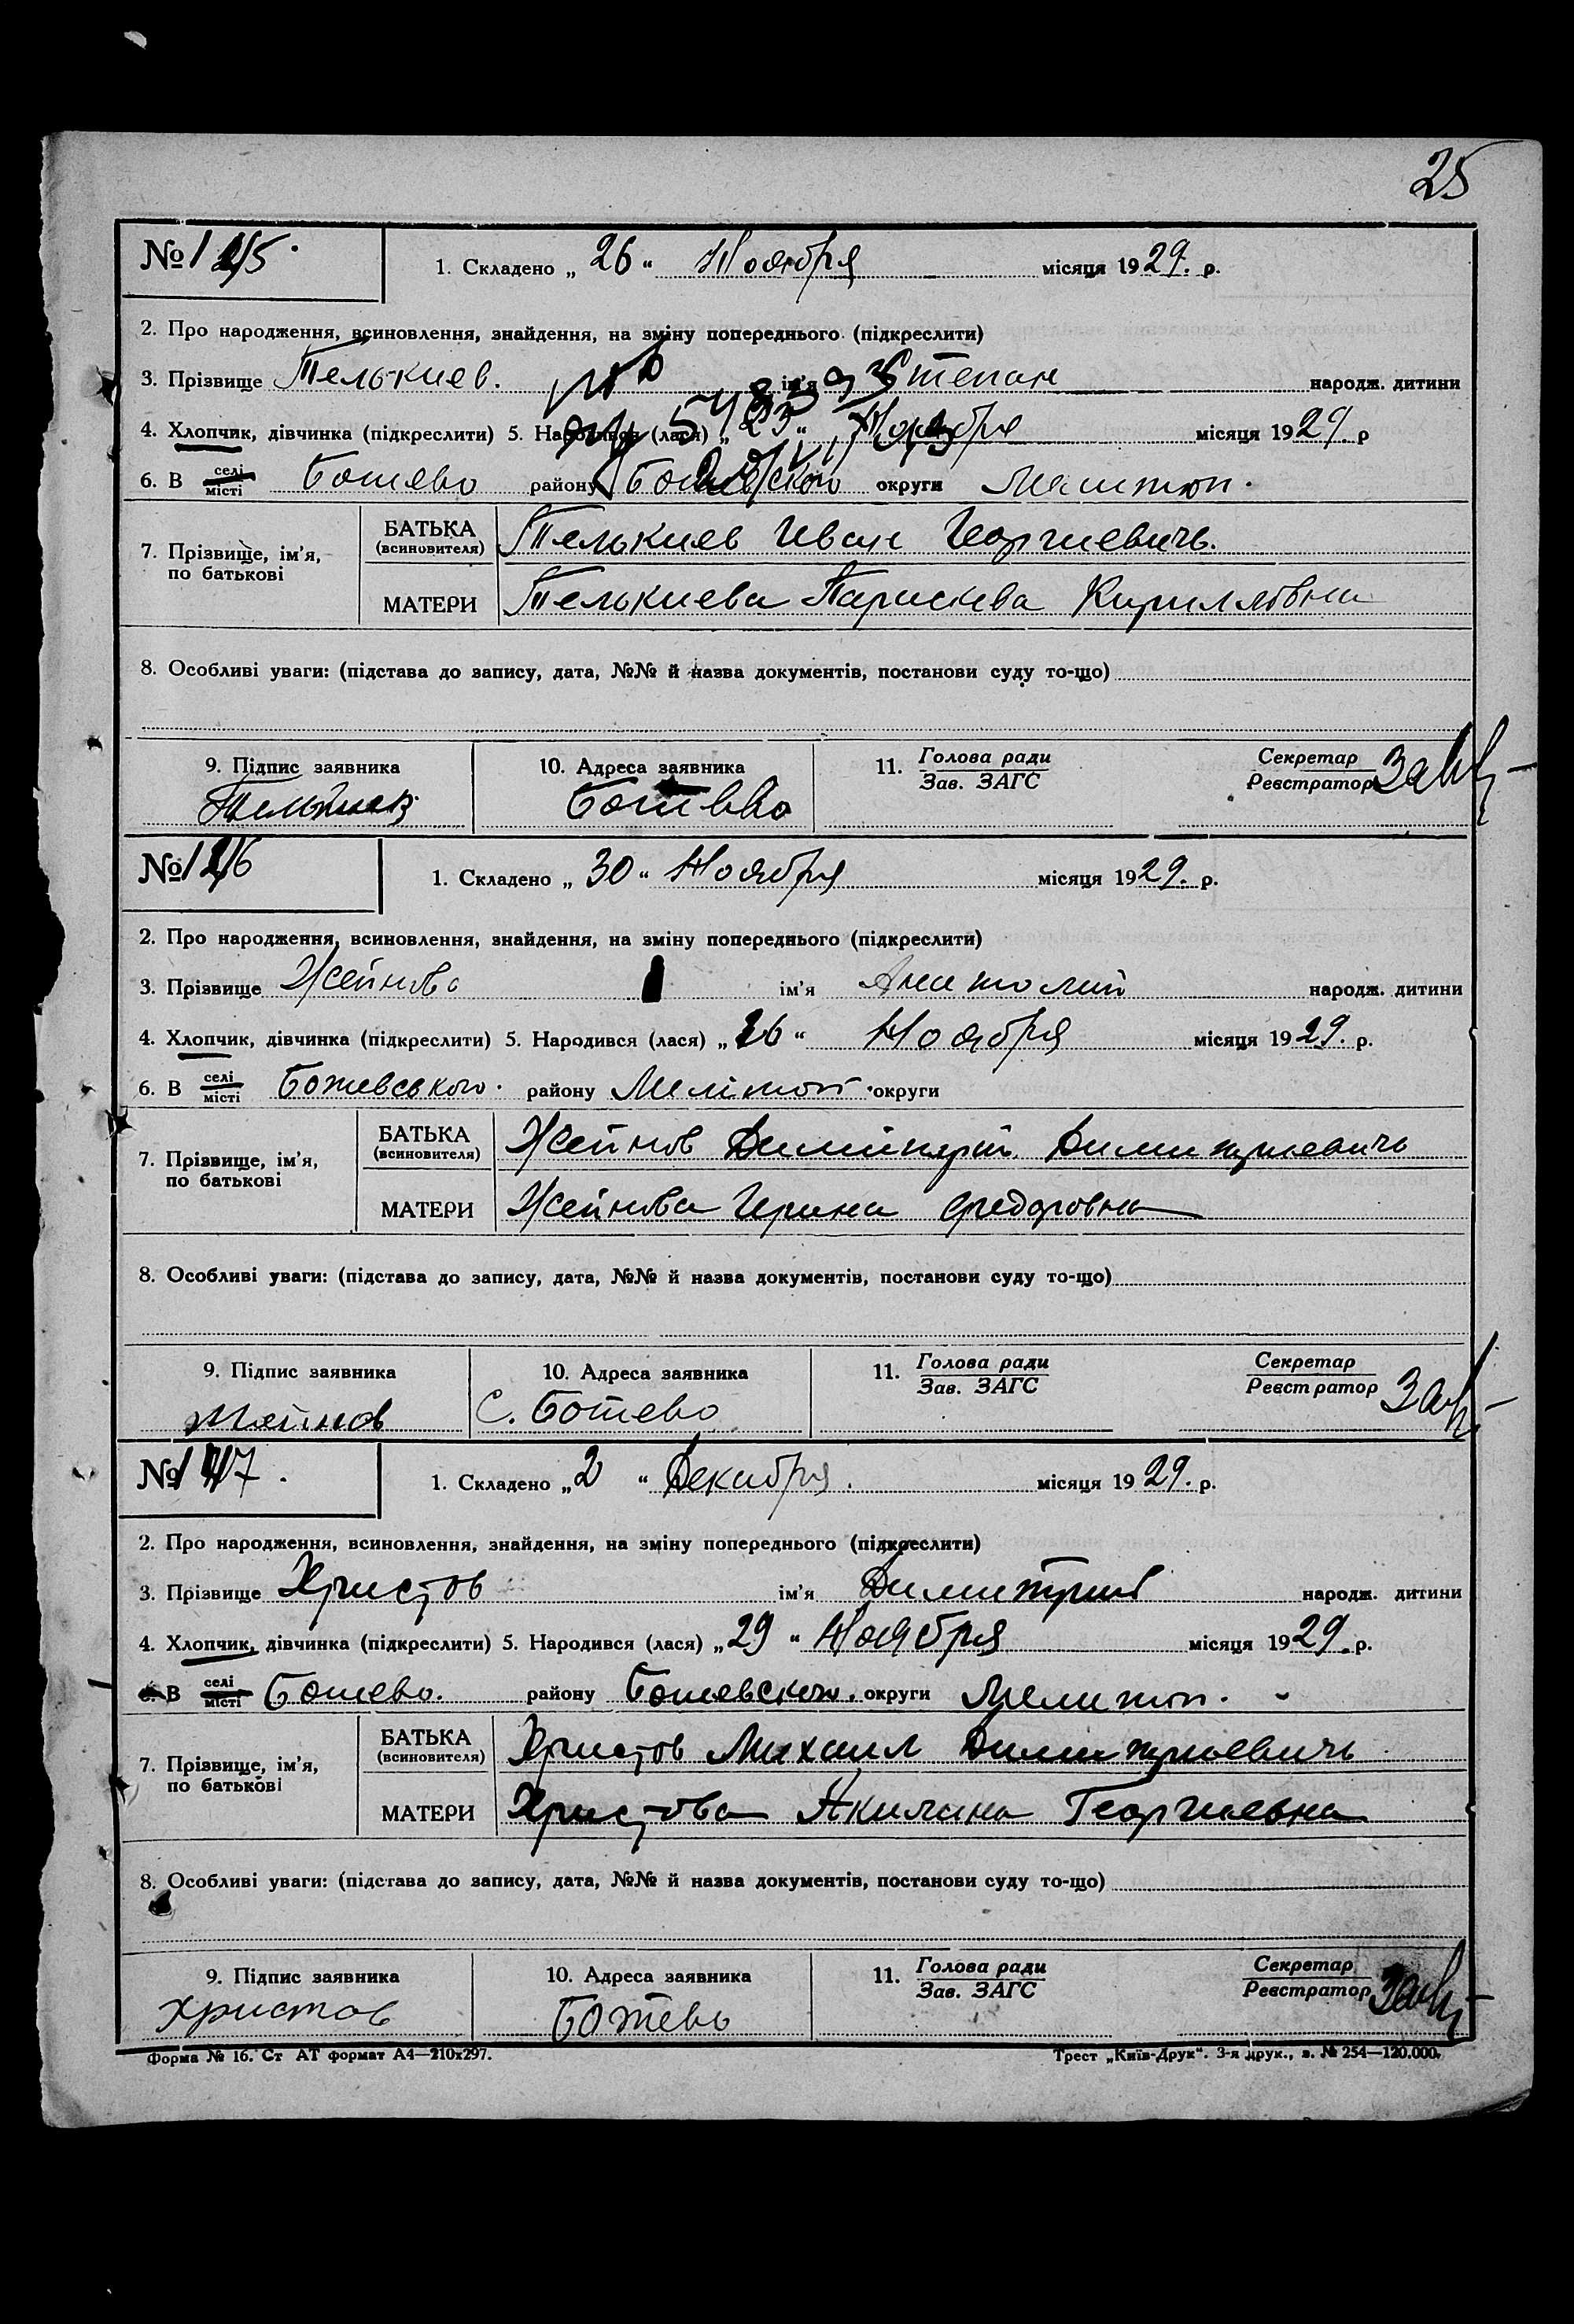 25
№ 125. 1. Складено „ 26 “ Ноября місяця 1929. р.
2. Про народження, всиновлення, знайдення, на зміну попереднього (підкреслити)
3. Прізвище Телькиев. ім'я Степан народж. дитини
4. Хлопчик, дівчинка (підкреслити) 5. Народився (лася) „ 23 “ Ноября місяця 1929 р
6. В селі місті Ботево району Ботевского округи Мелитоп.
7. Прізвище, ім'я, по батькові
БАТЬКА (всиновителя) Телькиев Иван Георгиевичь.
МАТЕРИ Телькиева Параскева Кирилловна
8. Особливі уваги: (підстава до запису, дата, №№ й назва документів, постанови суду то-що)
9. Підпис заявника 10. Адреса заявника 11. Голова ради Зав. ЗАГС Секретар Реєстратор
Ботево
№ 126 1. Складено „ 30 “ Ноября місяця 1929. р.
2. Про народження, всиновлення, знайдення, на зміну попереднього (підкреслити)
3. Прізвище Жейнов ім'я Анатолий народж. дитини
4. Хлопчик, дівчинка (підкреслити) 5. Народився (лася) „ 26 “ Ноября місяця 1929. р.
6. В селі місті Ботевського. району Мелітоп. округи
7. Прізвище, ім'я, по батькові
БАТЬКА (всиновителя) Жейнов Димитрий Димитриевичь
МАТЕРИ Жейнова Ирина Федоровна
8. Особливі уваги: (підстава до запису, дата, №№ й назва документів, постанови суду то-що)
9. Підпис заявника 10. Адреса заявника 11. Голова ради Зав. ЗАГС Секретар Реєстратор
Жейнов С. Ботево
№ 127. 1. Складено „ 2 “ Декабря. місяця 1929. р.
2. Про народження, всиновлення, знайдення, на зміну попереднього (підкреслити)
3. Прізвище Христов ім'я Димитрий народж. дитини
4. Хлопчик, дівчинка (підкреслити) 5. Народився (лася) „ 29 “ Ноября місяця 1929. р.
6. В селі місті Ботево. району Ботевского. округи Мелитоп.
7. Прізвище, ім'я, по батькові
БАТЬКА (всиновителя) Христов Михаил Димитриевичь
МАТЕРИ Христова Акилина Георгиевна
8. Особливі уваги: (підстава до запису, дата, №№ й назва документів, постанови суду то-що)
9. Підпис заявника 10. Адреса заявника 11. Голова ради Зав. ЗАГС Секретар Реєстратор
Христов Ботево
Форма № 16. Ст АТ формат А4—210х297. Трест „Київ-Друк“. 3-я друк., з. № 254—120.000.